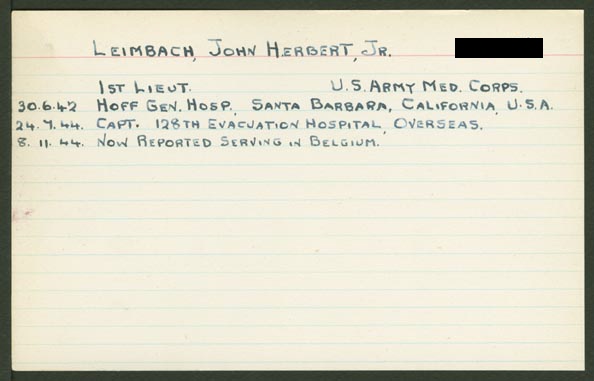 Leimbach, John Herbert, Jr.
1st Lieut. U.S. Army Med. Corps.
30.6.42 Hoff Gen. Hosp., Santa Barbara, California, U.S.A.
24.7.44. Capt. 128th Evacuation Hospital, Overseas.
8.11.44. Now Reported Serving in Belgium.